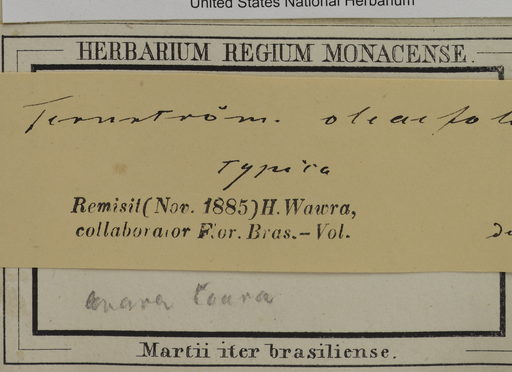 United States National Herbarium
HERBARIUM REGIUM MONACENSE.
Ternström. oleaefol
typica
Remisit (Nov. 1885) H. Wawra,
collaborator Flor. Bras. – Vol.
Martii iter brasiliense.